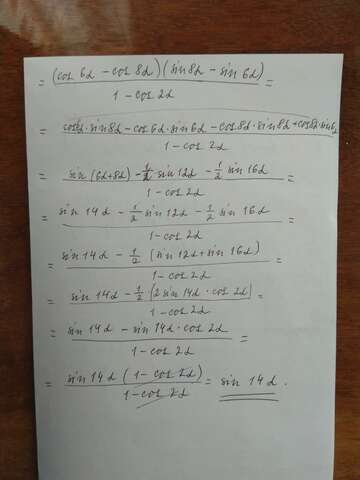 = (cos 6α − cos 8α)(sin 8α − sin 6α) / 1 − cos 2α =
= cos 6α · sin 8α − cos 6α · sin 6α − cos 8α · sin 8α + cos 8α · sin 6α / 1 − cos 2α =
= sin (6α + 8α) − 1/2 sin 12α − 1/2 sin 16α / 1 − cos 2α =
= sin 14α − 1/2 sin 12α − 1/2 sin 16α / 1 − cos 2α =
= sin 14α − 1/2 (sin 12α + sin 16α) / 1 − cos 2α =
= sin 14α − 1/2 (2 sin 14α · cos 2α) / 1 − cos 2α =
= sin 14α − sin 14α · cos 2α / 1 − cos 2α =
= sin 14α (1 − cos 2α) / 1 − cos 2α = sin 14α .